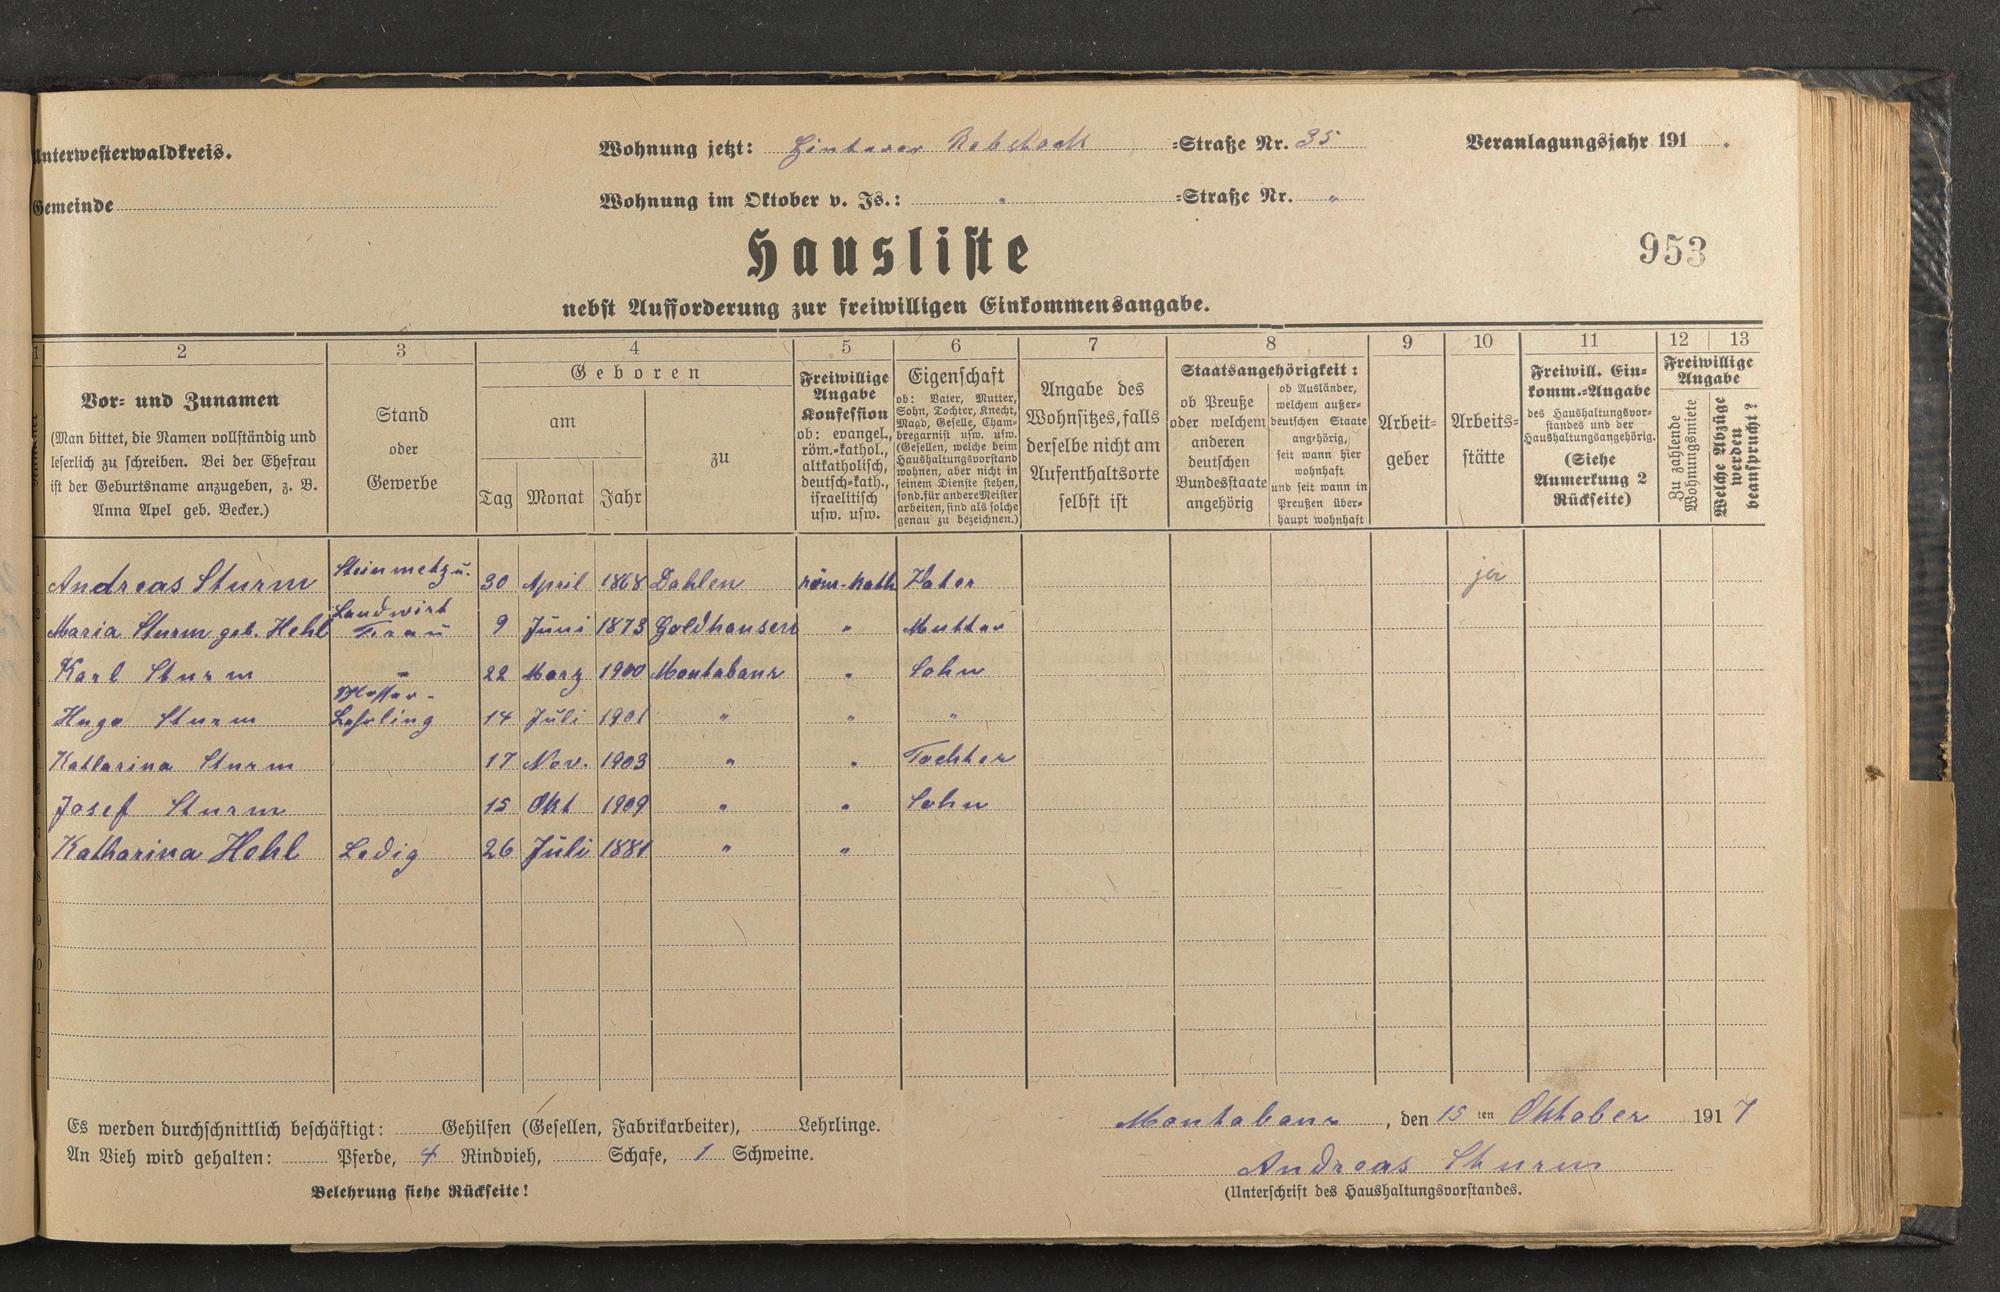 Unterwesterwaldkreis.
Wohnung jetzt: Hinterer Rebstock -Straße Nr. 35
Veranlagungsjahr 191 .
Gemeinde
Wohnung im Oktober v. Js.: " -Straße Nr. "
Hausliste
953
nebst Aufforderung zur freiwilligen Einkommensangabe.
1 2 3 4 5 6 7 8 9 10 11 12 13
Vor- und Zunamen
(Man bittet, die Namen vollständig und
leserlich zu schreiben. Bei der Ehefrau
ist der Geburtsname anzugeben, z. B.
Anna Apel geb. Becker.)
Stand
oder
Gewerbe
Geboren
am
Tag Monat Jahr
zu
Freiwillige
Angabe
Konfession
ob: evangel.,
röm.-kathol.,
altkatholisch,
deutsch-kath.,
israelitisch
usw. usw.
Eigenschaft
ob: Vater, Mutter,
Sohn, Tochter, Knecht,
Magd, Geselle, Cham-
bregarnist usw. usw.
(Gesellen, welche beim
Haushaltungsvorstand
wohnen, aber nicht in
seinem Dienste stehen,
sond. für andere Meister
arbeiten, sind als solche
genau zu bezeichnen.)
Angabe des
Wohnsitzes, falls
derselbe nicht am
Aufenthaltsorte
selbst ist
Staatsangehörigkeit:
ob Preuße
oder welchem
anderen
deutschen
Bundesstaate
angehörig
ob Ausländer,
welchem außer-
deutschen Staate
angehörig,
seit wann hier
wohnhaft
und seit wann in
Preußen über-
haupt wohnhaft
Arbeit-
geber
Arbeits-
stätte
Freiwill. Ein-
komm.-Angabe
des Haushaltungsvor-
standes und der
Haushaltungsangehörig.
(Siehe
Anmerkung 2
Rückseite)
Freiwillige
Angabe
Zu zahlende
Wohnungsmiete
Welche Abzüge
werden
beansprucht?
1 Andreas Sturm Steinmetz u. Landwirt 30 April 1868 Dahlen röm-kath Vater
2 Maria Sturm geb. Hehl Frau 9 Juni 1873 Goldhausen " Mutter
3 Karl Sturm - 22 Marz 1900 Montabaur " Sohn
4 Hugo Sturm Lehrling 14 Juli 1901 " " "
5 Katharina Sturm 17 Nov. 1903 " " Tochter
6 Josef Sturm 15 Okt 1909 " " Sohn
7 Katharina Hehl Ledig 26 Juli 1881 " "
8
9
10
11
12
Es werden durchschnittlich beschäftigt: Gehilfen (Gesellen, Fabrikarbeiter), Lehrlinge.
An Vieh wird gehalten: Pferde, 4 Rindvieh, Schafe, 1 Schweine.
Belehrung siehe Rückseite!
Montabaur, den 15 ten Oktober 1917
Andreas Sturm
(Unterschrift des Haushaltungsvorstandes.